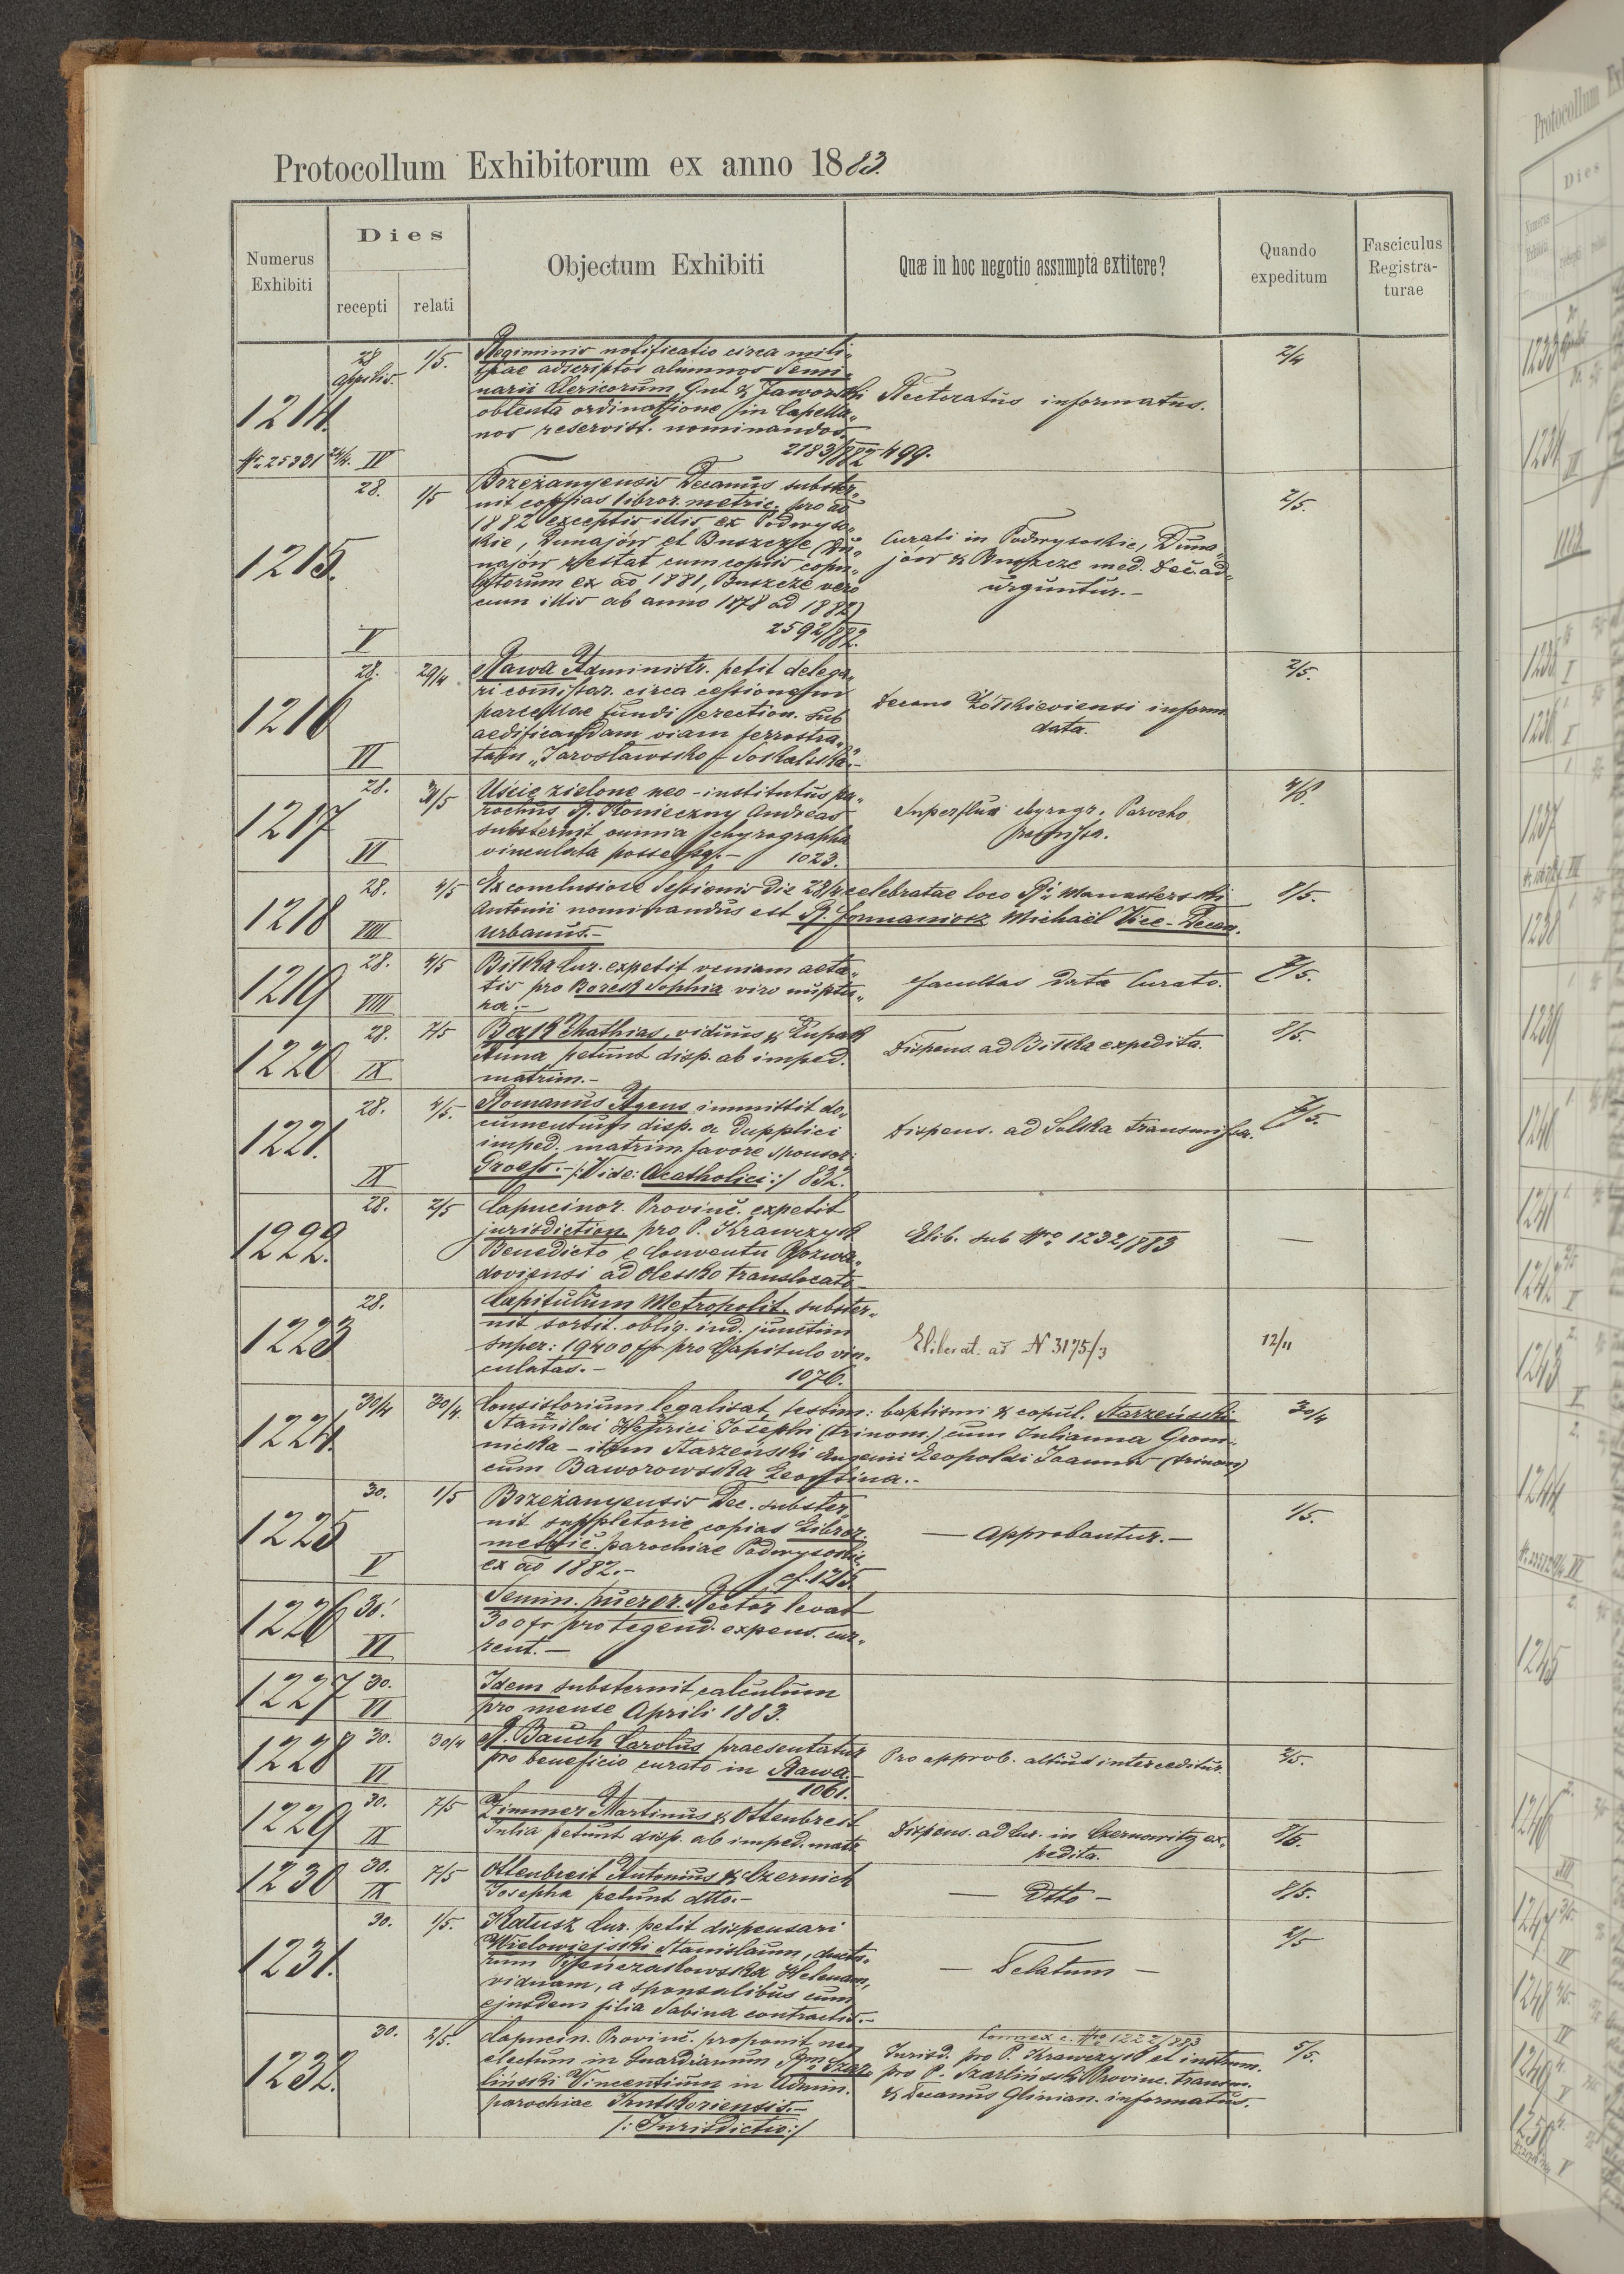 Protocollum Exhibitorum ex anno 1883.
Numerus Exhibiti
Dies
recepti
relati
Objectum Exhibiti
Quæ in hoc negotio assumpta extitere?
Quando expeditum
Fasciculus Registra-
turae
1214.
28 Aprilis.
1/5.
Regiminis notificatio circa mili-
tiae adscriptos alumnos Semi-
narii Clericorum Gnl & Jaworski
obtenta ordinatione in Capella-
nos reservist. nominandos.
2183/882 499.
Nr. 25331 24/4. IV
Rectoratus informatus.
2/4
1215.
28.
1/5
V
Brzeżanyensis Decanus subster-
nit coppias libror. metric. pro ao
1882 exceptis illis ex Podwyso-
kie, Dunajów et Buszcze (Du-
najów restat cum copiis copu-
latorum ex ao 1881, Buszcze vero
cum illis ab anno 1878 ad 1882)
2592/882.
Curati in Podwysokie, Duna-
jów & Buszcze med. Dec. ad-
urguntur.-
2/5.
1216
28.
29/4
VI
Rawa Administr. petit delega-
ri comissar. circa cessionem
parcellae fundi erection. sub
aedificandam viam ferrostra-
tam "Jarosławsko - Sokalska".-
Decano Żółkieviensi inform.
data.
2/5.
1217
28.
VI
Uście zielone neo-institutus pa-
rochus R. Konieczny Andreas
substernit omnia chyrographa
vinculata possess.- 1023.
Superflua chyrogr. Parocho
remissa.
1218
28.
4/5
VIII
Ex conclusione Sessionis die 28/4 celebratae loco R. Manasterski
Antonii nominandus est R. Formaniosz Michaël Vice-Decan.
urbanus.-
8/5.
1219
28.
4/5
VIII
Bilka Cur. expetit veniam aeta-
tis pro Borek Sophia viro nuptu-
ra.-
Facultas data Curato.
1220
28.
7/5
IX
Bąk Mathias, viduus & Łupak
Anna petunt disp. ab imped.
matrim.-
Dispens. ad Bilka expedita.
8/5.
1221.
28.
4/5.
IX
Romanus Agens immittit do-
cumentum disp. a dupplici
imped. matrim. favore sponsor.
Groess.- /:Vide: Acatholici:/ 832.
Dispens. ad Solka transmissa.
1222.
28.
2/5
Capucinor. Provinc. expetit
jurisdiction. pro P. Krawczyk
Benedicto e Conventu Rozwa-
doviensi ad Olesko translocato.
Elib. sub Nro 1232/883
—
1223
28.
Capitulum Metropolit. subster-
nit sortit. oblig. ind. junctim
super: 19400 fr pro Capitulo vin-
culatas.- 1076.
Eliberat. ad N 3175/3
12/11
1224.
30/4
30/4.
Consistorium legalisat testim: baptismi & copul. Starzeński
Stanislai Henrici Josephi (trinom.) cum Julianna Grom-
nicka - item Starzeński Eugenii Leopoldi Joannis (trinom)
cum Baworowska Leontina.-
30/4
1225
30.
1/5
V
Brzeżanyensis Dec. subster-
nit suppletorie copias Libror.
metric. parochiae Podwysokie
ex ao 1882.- cf. 1215.
— Approbantur.-
1/5.
1226
30.
VI
Semin. pueror. Rector levat
300 fr pro tegend. expens. cur-
rent.-
1227
30.
VI
Idem substernit calculum
pro mense Aprili 1883.
1228
30.
30/4
VI
R. Bauch Carolus praesentatur
pro beneficio curato in Rawa.-
1061.
Pro approb. altius interceditur.
2/5.
1229
30.
7/5
IX
Zimmer Martinus & Ottenbreit
Julia petunt disp. ab imped. matr.
Dispens. ad Cur. in Czernowitz ex-
pedita.
8/5.
1230
30.
7/5
IX
Ottenbreit Antonius & Czernich
Josepha petunt dtto.-
— Dtto -
8/5.
1231.
30.
1/5.
Kałusz Cur. petit dispensari
Wielowiejski Stanislaum,
Helenam,
viduam, a sponsalibus cum
ejusdem filia Sabina contractis.-
— Delatum —
2/5
1232.
30.
2/5.
Capucin. Provinc. proponit neo
electum in Guardianum Szar-
liński Vincentium in Admin.
parochiae Krutkoriensis.-
/:Jurisdictio:/
Connex c. Nro 1222/883
Jurisd. pro P. Krawczyk et instrum.
pro P. Szarliński Provinc. transm.
& Decanus Glinian. informatus.
5/5.